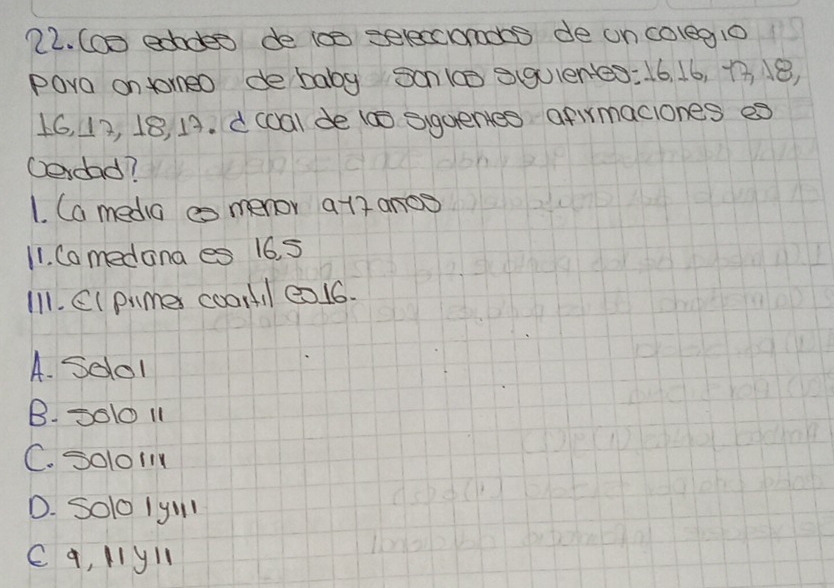 22. Las edades de los seleccionados de un colegio
para un torneo de baby son las siguientes: 16, 16, 17, 18,
16, 17, 18, 17. ¿cual de las siguientes afirmaciones es
verdad?
I. La media es menor a 17 anos
II. La mediana es 16,5
III. El primer cuartil es 16.
A. Solo I
B. Solo II
C. Solo III
D. Solo I y III
E I, II y II